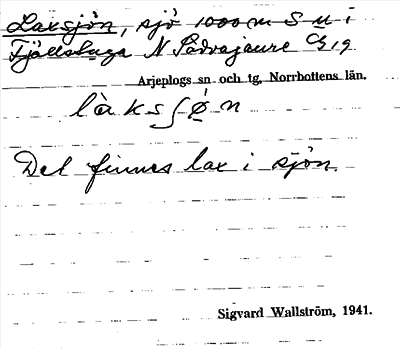 Laxsjön, sjö 1000 m S u i
Fjällstuga N Sädvajaure C519
Arjeplogs sn och tg, Norrbottens län.
làksʃǿn
Det finnes lax i sjön.
Sigvard Wallström, 1941.